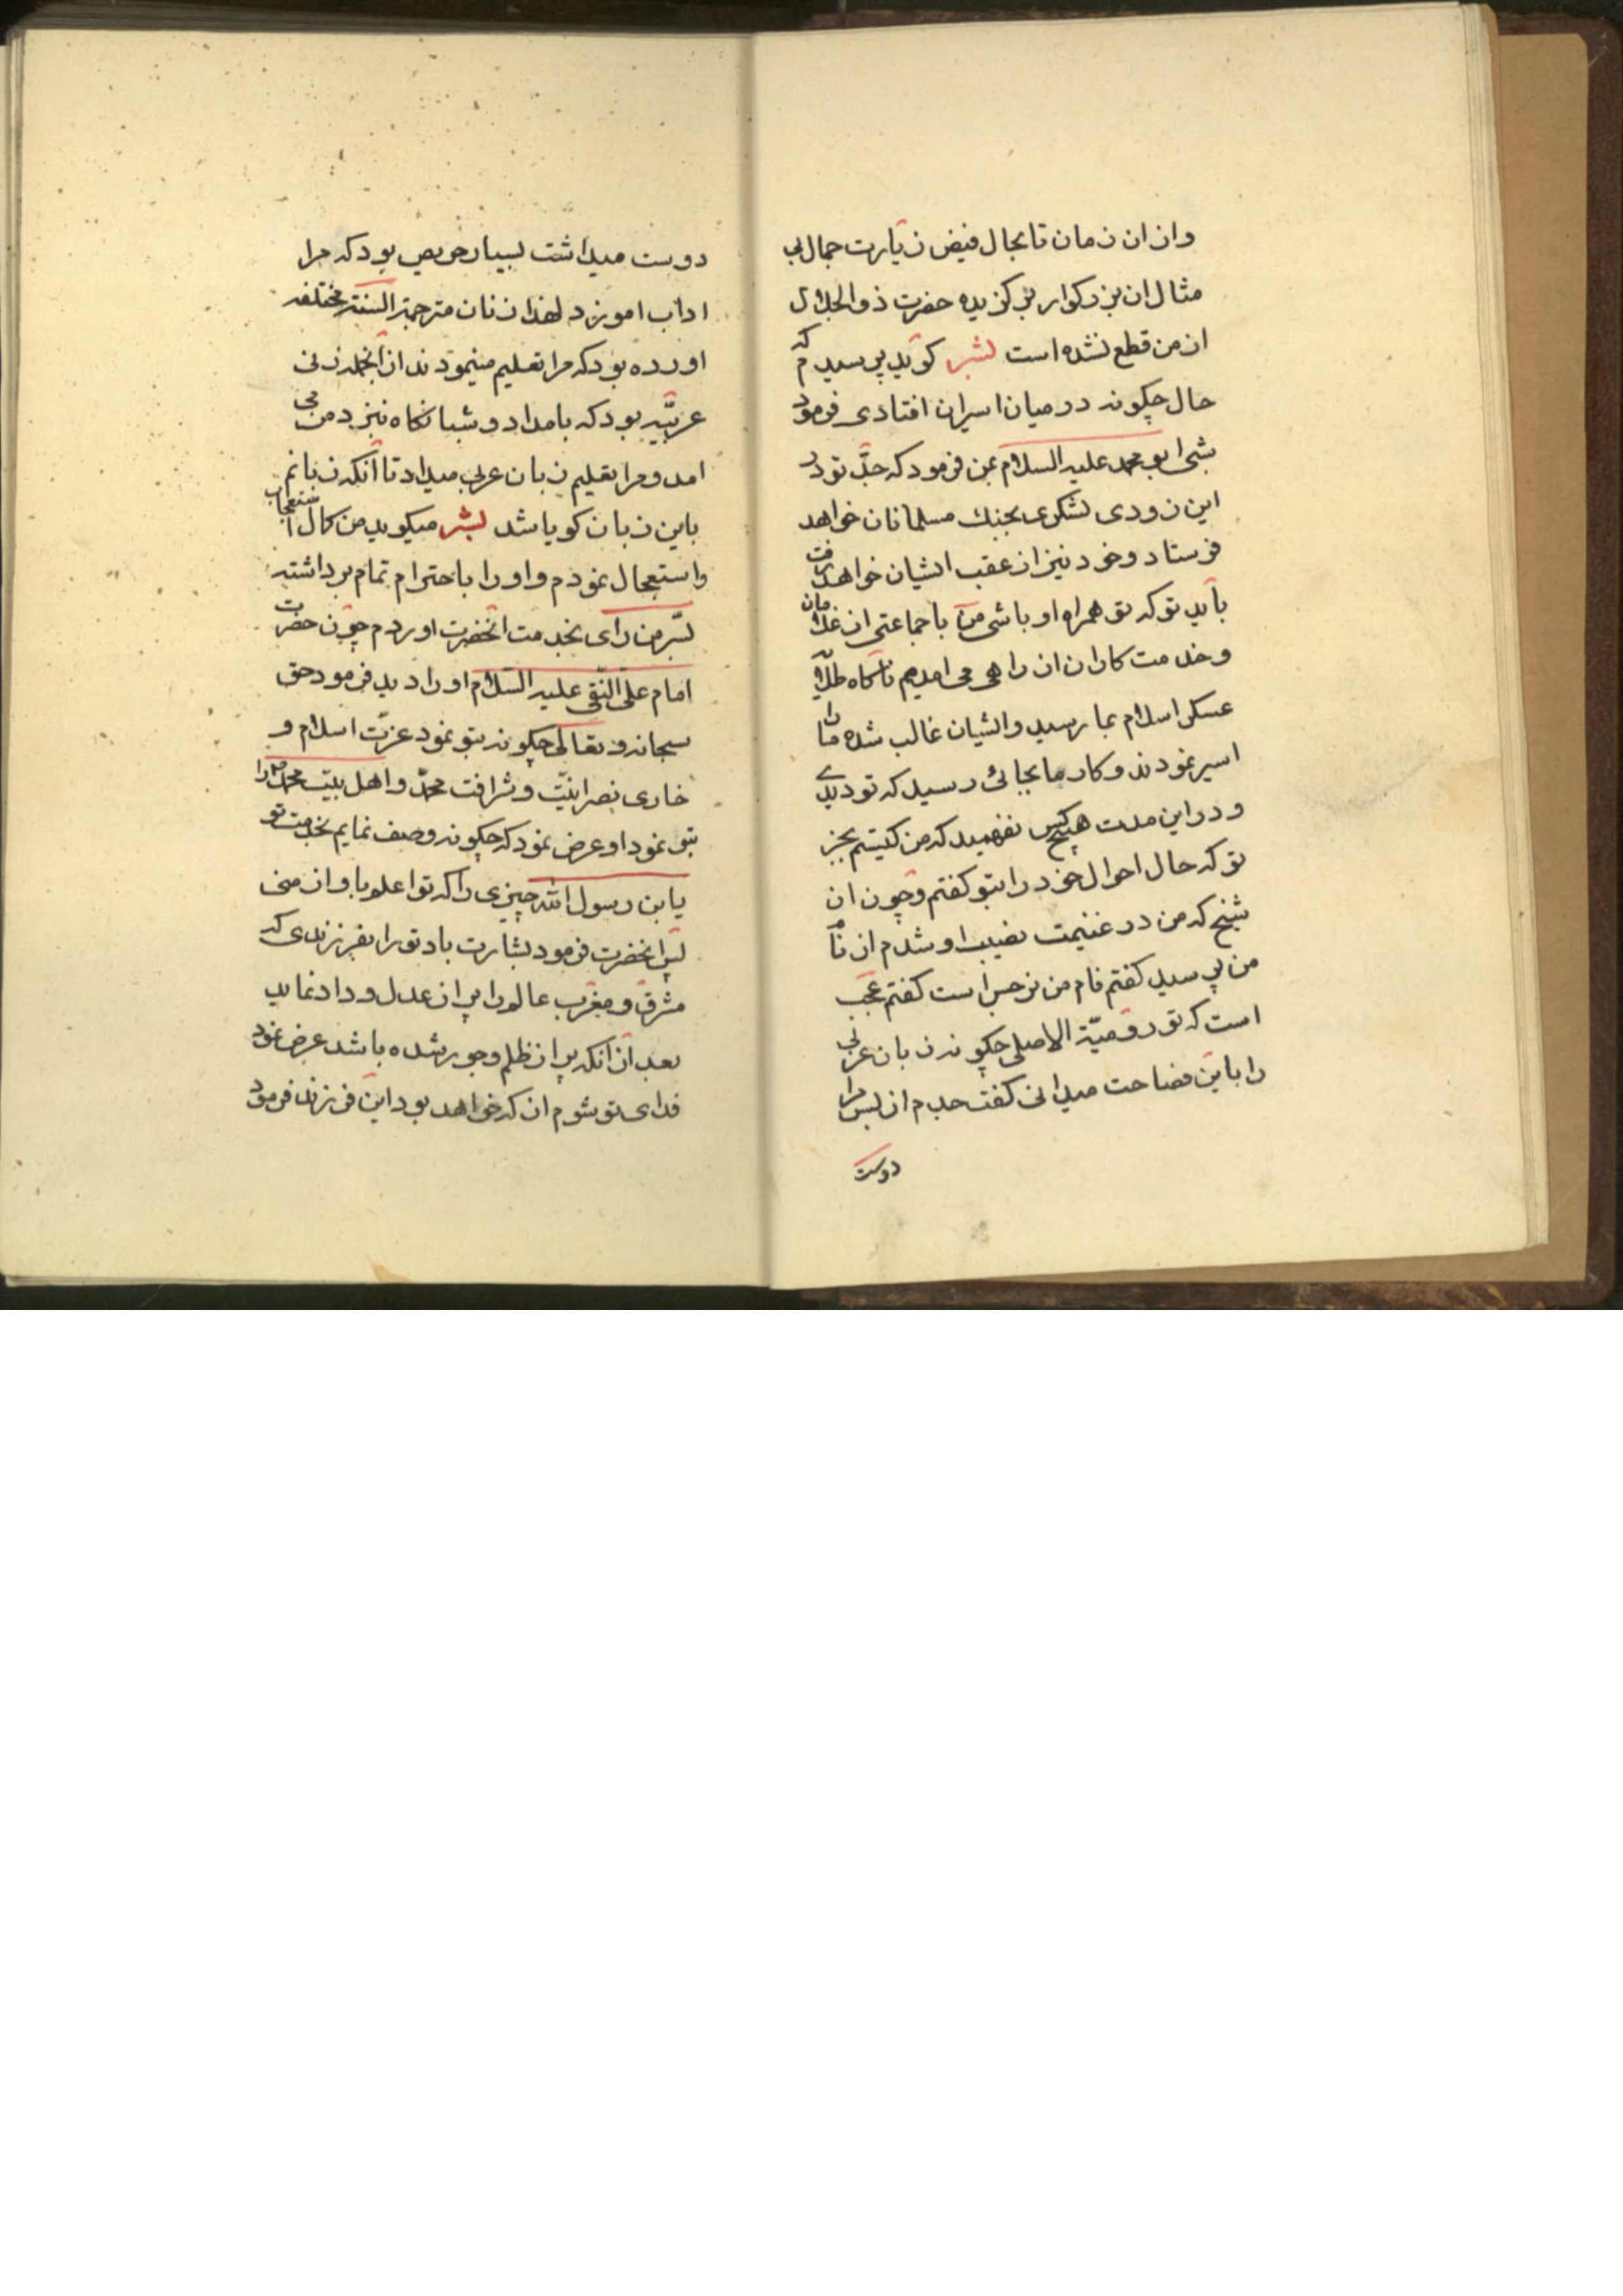 وازان زمان تا بحال فیض زیارت جمال بی
مثال ان بزرکوار برکزیده حضرت ذوالجلال
از من قطع نشده است بشر کوید پرسیدم که
حال چکونه در میان اسیران افتادی فرمود
شبی ابو محمد علیه السلام بمن فرمود که جدّ تو در
این زودی لشکری بجنك مسلمانان خواهد
فرستاد وخود نیز از عقب ایشان خواهد رفت
باید تو که تو همراه او باشی من با جماعتی از غلامان
وخدمت کاران از راهی می امدیم ناکاه طلایه
عسکر اسلام بما رسید وایشان غالب شده ما را
اسیر نمودند وکار ما بجائی رسید که تو دیدی
ودر این مدت هیچکس نفهمید که من کیستم بجز
تو که حال احوال خود را بتو کفتم وچون ان
شیخ که من در غنیمت نصیب او شدم از نام
من پرسید کفتم نام من نرجس است کفتم عجب
است که تو رومیّة الاصلی چکونه زبان عربی
را باین فصاحت میدانی کفت جدم از بس مرا
دوست
دوست میداشت بسیار حریص بود که مرا
اداب اموزد لهذا زنان مترجمة السنة مختلفه
اورده بود که مرا تعلیم مینمودند از انجمله زنی
عربیّه بود که بامداد و شبانکاه نیز د من می
امد و مرا تعلیم زبان عربی میداد تا انکه زبانم
باین زبان کویا شد بشر میکوید من کمال استعجاب
واستعجال نمودم واو را باحترام تمام برداشته
بسّر من رای بخدمت انحضرت اوردم چون حضرت
امام علی النّقی علیه السّلام او را دید فرمود حق
سبحانه و تعالی چکونه بتو نمود عزّت اسلام و
خاری نصرانیّت و شرافت محمّد واهل بیت محمد را
بتو نمود او عرض نمود که چکونه وصف نمایم بخدمت تو
یابن رسول الله چیزی را که تو اعلم با و از منی
پس انحضرت فرمود بشارت باد تو را بفرزندی که
مشرق و مغرب عالم را پر از عدل و داد نماید
بعد از انکه پر از ظلم وجور شده باشد عرض نمود
فدای تو شوم از که خواهد بود این فرزند فرمود